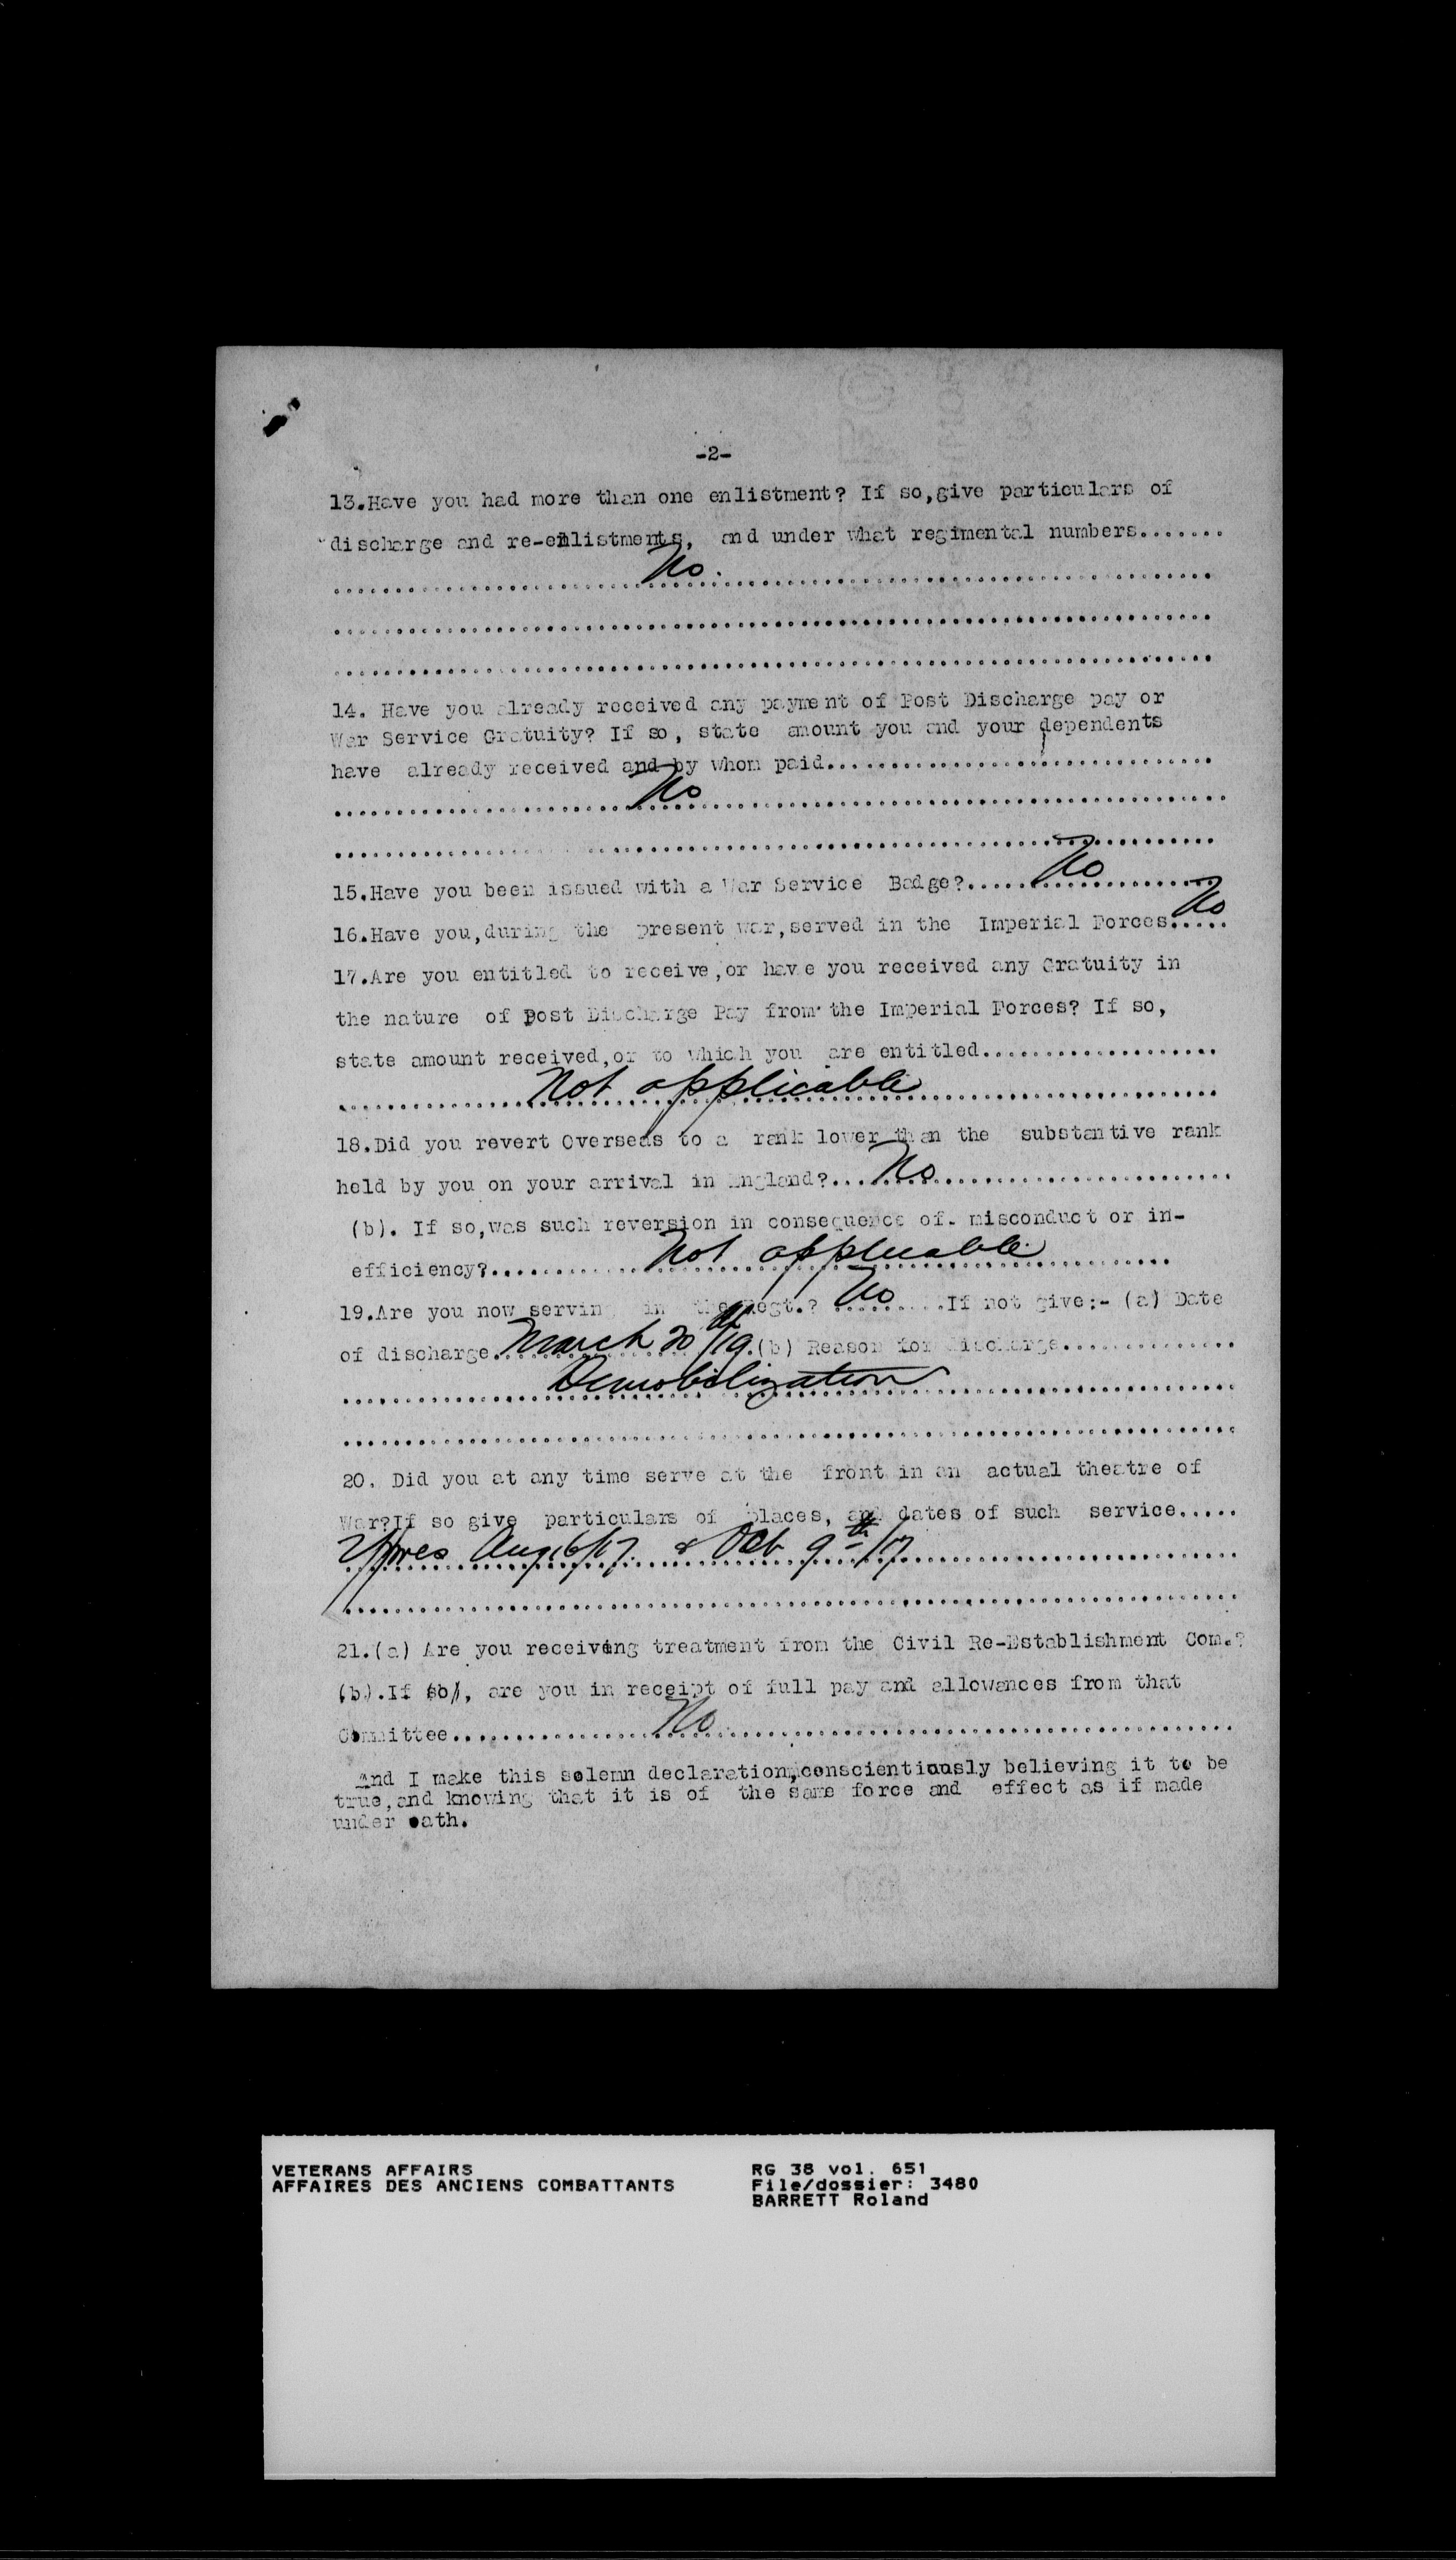 -2-
13.Have you had more than one enlistment? If so,give particulars of
discharge and re-enlistments, and under what regimental numbers.......
No.
14. Have you already received any payment of Post Discharge pay or
War Service Gratuity? If so, state amount you and your dependents
have already received and by whom paid...............................
No
15.Have you been issued with a War Service Badge?..... No
16.Have you,during the present war,served in the Imperial Forces..... No
17.Are you entitled to receive,or have you received any Gratuity in
the nature of post Discharge Pay from the Imperial Forces? If so,
state amount received,or to which you are entitled...................
Not applicable
18.Did you revert Overseas to a rank lower than the substantive rank
held by you on your arrival in England?... No
(b). If so,was such reversion in consequence of misconduct or in-
efficiency?.......... Not applicable
19.Are you now serving in the Regt.? No .....If not give:- (a) Date
of discharge. March 20th/19.(b) Reason for discharge..............
Demobilization
20. Did you at any time serve at the front in an actual theatre of
War?If so give particulars of places, and dates of such service.....
Ypres Aug 16/17. & Oct 9th/17
21.(a) Are you receiving treatment from the Civil Re-Establishment Com.?
(b).If so, are you in receipt of full pay and allowances from that
Committee................ No
And I make this solemn declaration,conscientiously believing it to be
true,and knowing that it is of the same force and effect as if made
under oath.
VETERANS AFFAIRS
AFFAIRES DES ANCIENS COMBATTANTS
RG 38 vol. 651
File/dossier: 3480
BARRETT Roland